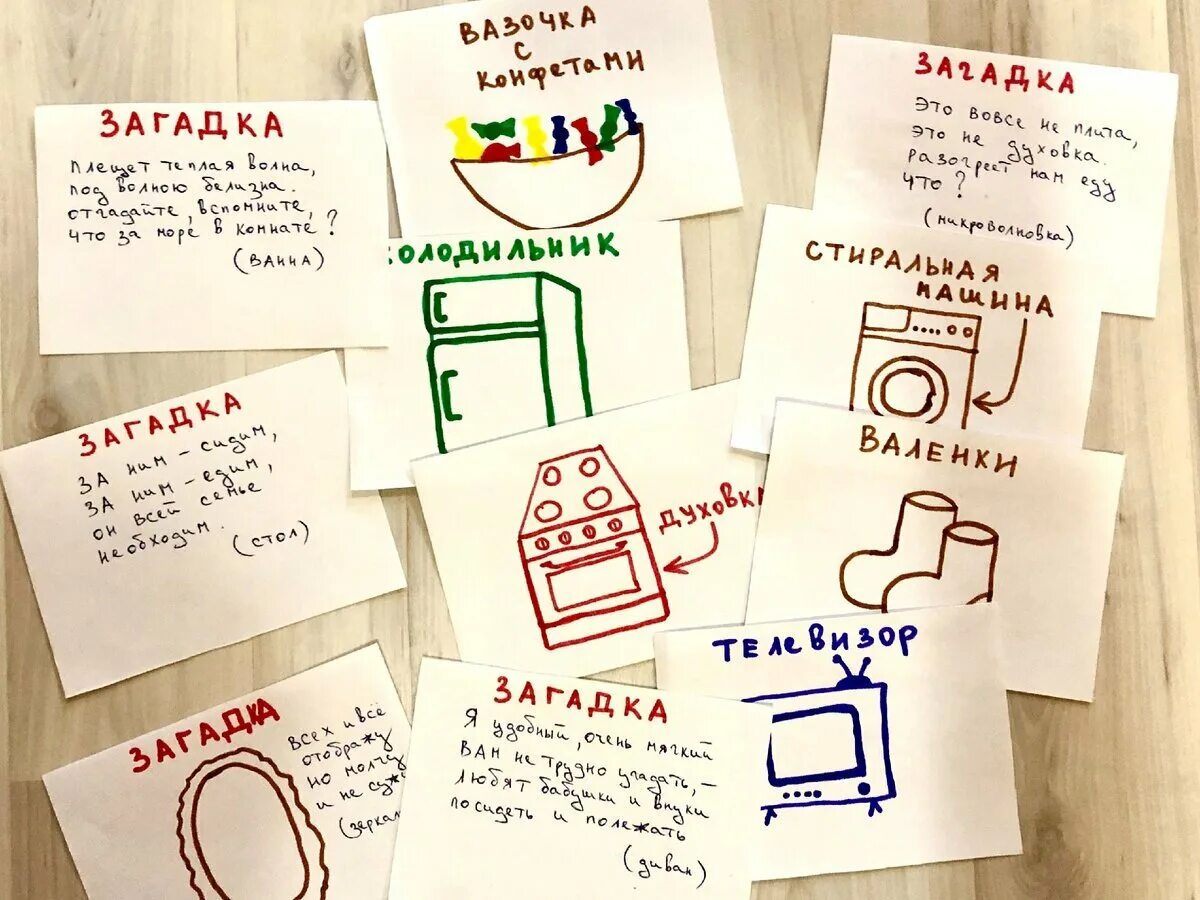 ВАЗОЧКА
С
КОНФЕТАМИ
ЗАГАДКА
Это вовсе не плита,
Это не духовка.
Разогреет нам еду
Что?
(микроволновка)
ЗАГАДКА
Плещет теплая волна,
под волною белизна.
отгадайте, вспомните,
что за море в комнате?
(ванна)
ХОЛОДИЛЬНИК
СТИРАЛЬНАЯ
МАШИНА
ЗАГАДКА
За ним – сидим,
За ним – едим,
он всей семье
необходим.
(стол)
ДУХОВКА
ВАЛЕНКИ
ТЕЛЕВИЗОР
ЗАГАДКА
Всех и всё
отображу
но молчу
и не
(зеркал
ЗАГАДКА
Я удобный, очень мягкий
Вам не трудно угадать, –
любят бабушки и внуки
посидеть и полежать
(диван)